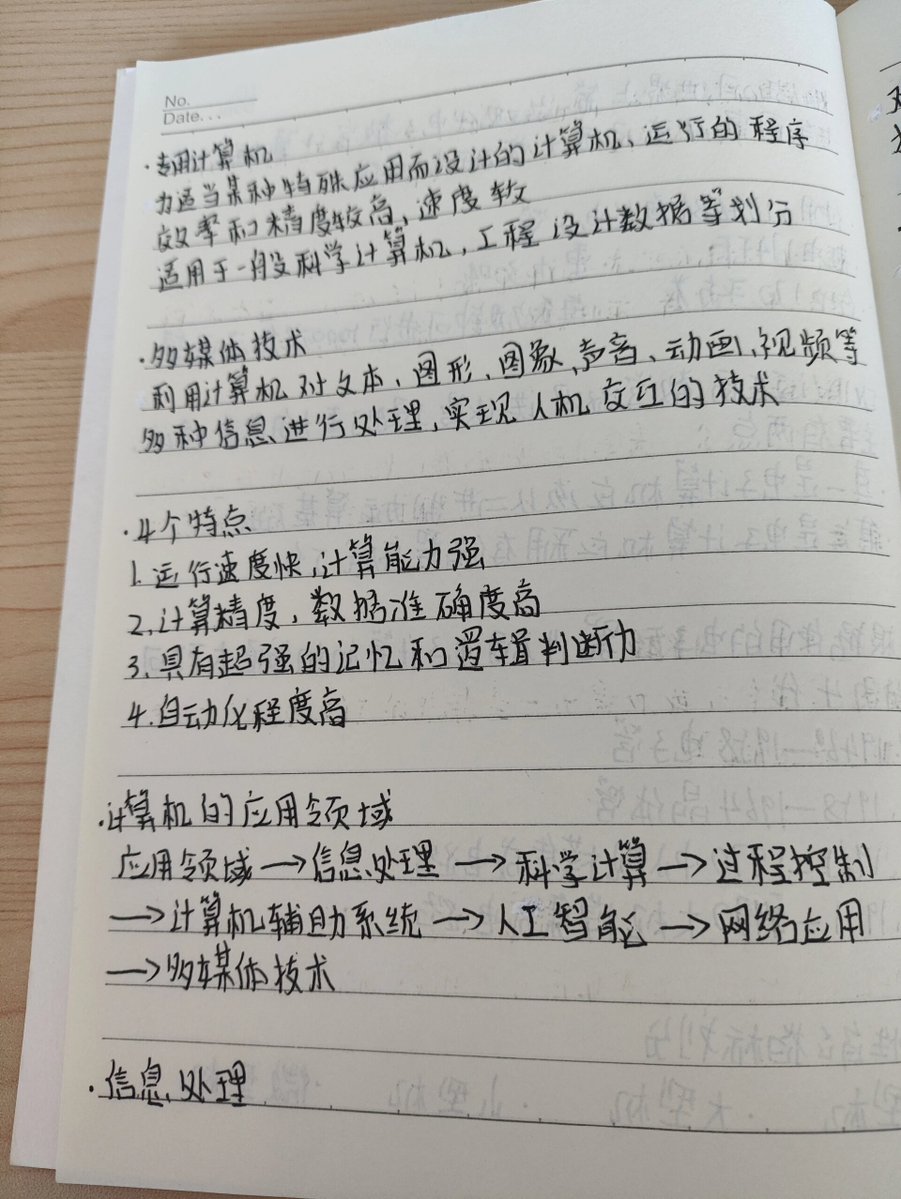 No.
Date...
·专用计算机
力适当某种特殊应用而设计的计算机、运行的程序
效率和精度较高、速度较
适用于一般科学计算机,工程设计数据等划分
·多媒体技术
利用计算机对文本、图形、图象、声音、动画、视频等
多种信息进行处理,实现人机交互的技术
·4个特点
1.运行速度快,计算能力强
2.计算精度,数据准确度高
3.具有超强的记忆和逻辑判断力
4.自动化程度高
·计算机的应用领域
应用领域→信息处理→科学计算→过程控制
→计算机辅助系统→人工智能→网络应用
→多媒体技术
·信息处理